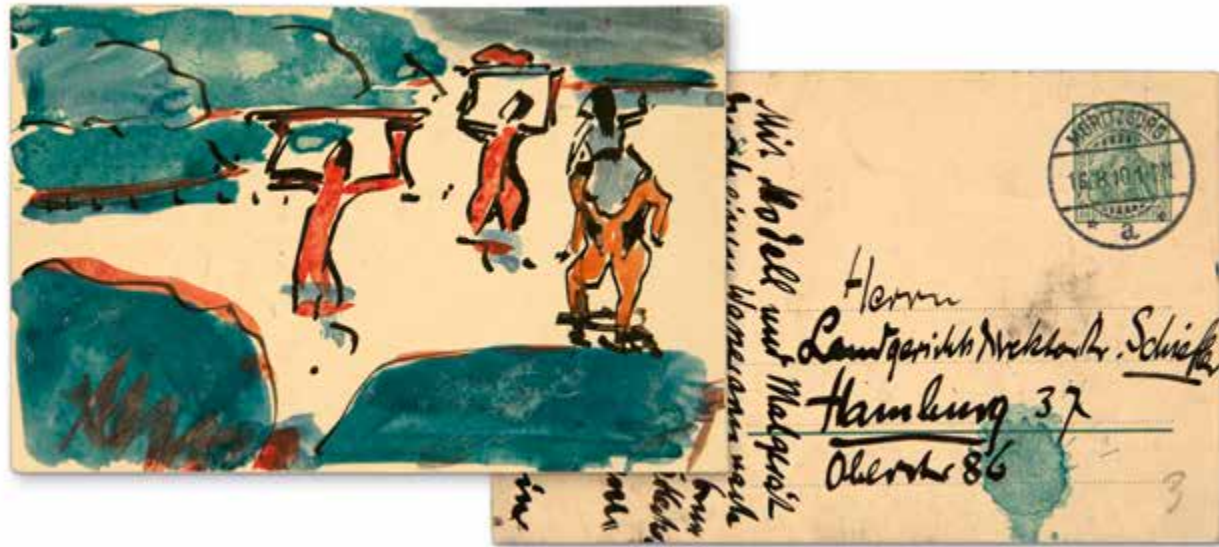 Mit Modell und Malgerät
einen Wasserarm nach
MORITZBURG
16.8.10.1-2N.
a
Herrn
Landgerichtsdirektor Dr. Schiefler
Hamburg 37
Oberstr 86
3